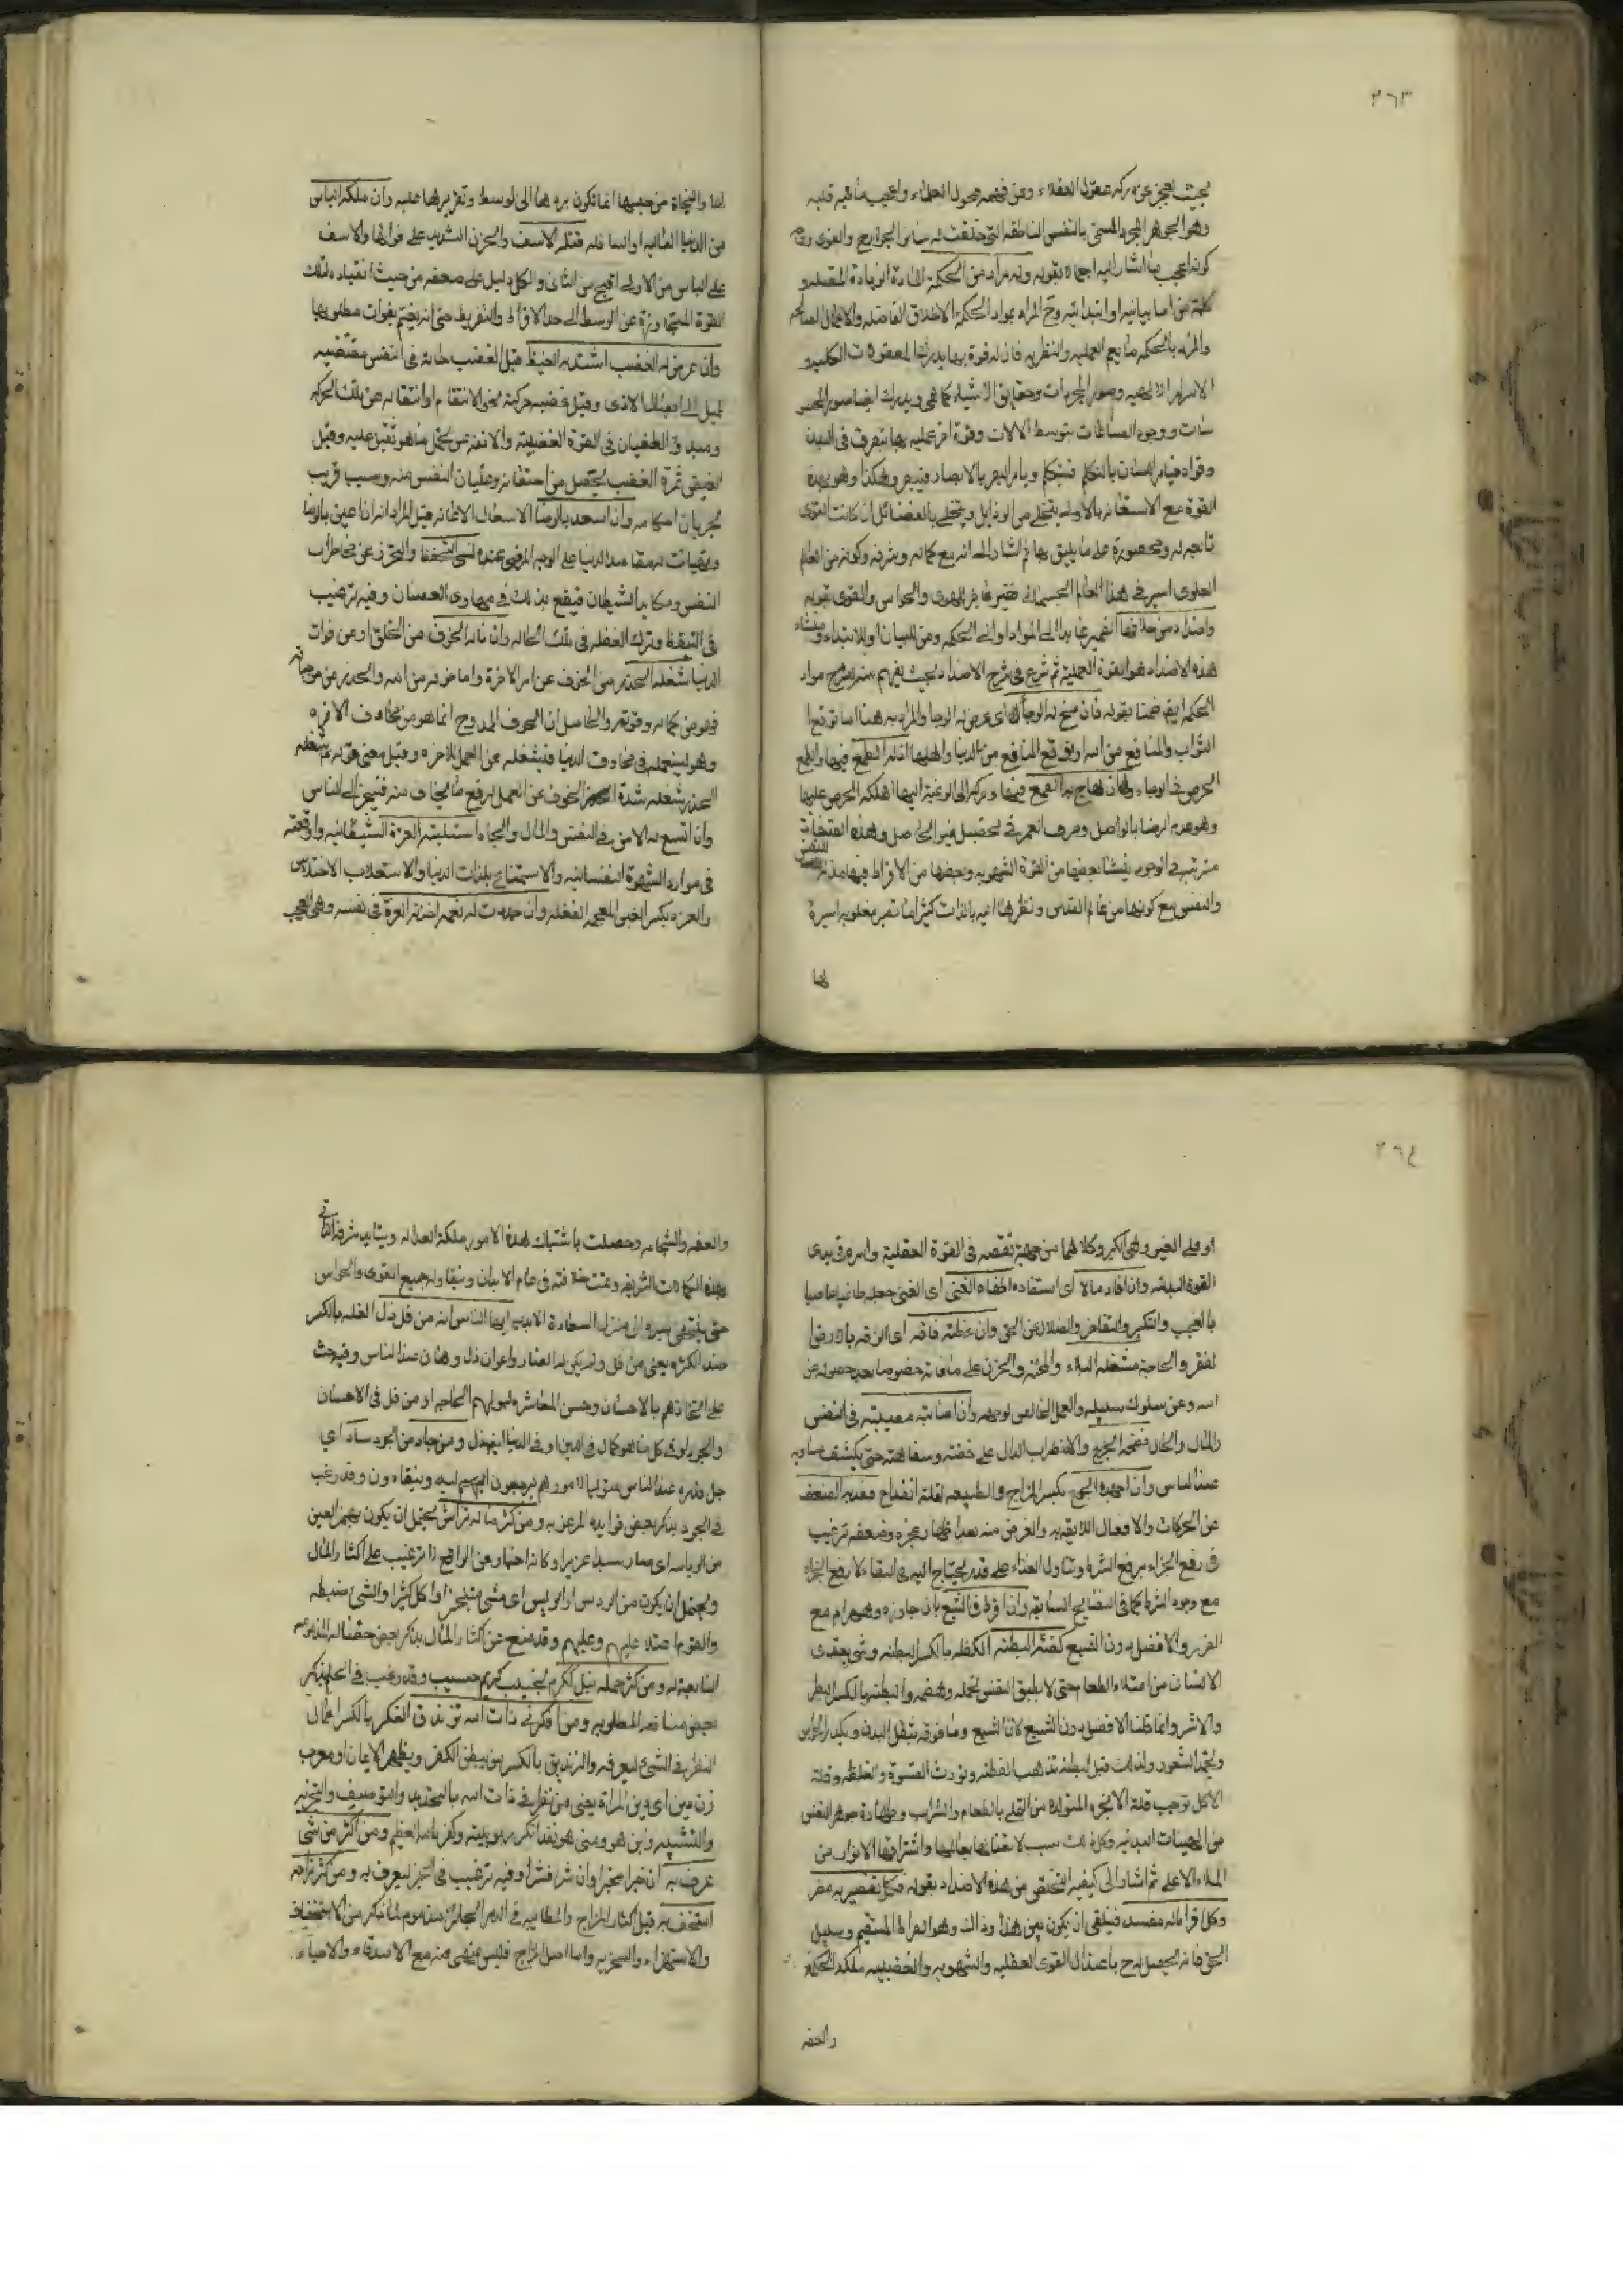 ٢٦٣
بحيث يعجز عن دركه عقول العقلاء وعن فهمه فحول العلماء واعجب ما فيه قلبه
وهو الجوهر المجرد المسمى بالنفس الناطقة التي خلقت له سائر الجوارح والقوى
كونه اعجب بما اشار اليه اجمالا بقوله وله مواد من الحكمة المادة الزيادة المتصلة و
كلمة من اما بيانيه او ابتدائيه والمراد بمواد الحكمة الاخلاق الفاضله والاعمال الصالحه
والمراد بالحكمة ما يعم العمليه والنظريه فان له قوة بها يدرك المعقولات الكليه و
الاسرار الالهيه وصور المجردات وحقايق الاشياء كما هي ويدرك ايضا صور المحسو
سات ووجوه الصناعات بتوسط الالات وقوة اخرى عمليه بها يتصرف في البدن
وقواه فيامر اللسان بالتكلم فيتكلم ويامر البصر بالابصار فيبصر وهكذا وهو بهذه
القوة مع الاستعانه بالاولى يتخلى من الرذايل ويتحلى بالفضائل ان كانت القوى
تابعه له ومقصورة على ما يليق بها ثم اشار الى انه مع كماله وشرفه وكونه من العالم
العلوى اسير في هذا العالم الجسماني فقير غافر الهوى والحواس والقوى بقوله
واضداد من خلافها الضمير عايد الى المواد او الى الحكمة ومن للبيان او للابتداء ومنشاء
هذه الاضداد هو القوة العملية ثم شرع في شرح الاضداد بحيث يفهم منه شرح مواد
الحكمة ايضا ضمنا بقوله فان سنح له الرجاء اى عرض له الرجا والمراد به هنا اما توقع
الثواب والمنافع من الله او توقع المنافع من الدنيا واهلها اذله الطمع فيها والطمع
الحرص في الرجاء وان هاج به الطمع فيها وحركه الى الرغبة اليها اهلكه الحرص عليها
وهو عدم الرضا بالواصل وصرف العمر في تحصيل غير الحاصل وهذه الصفات
مترتبه في الوجود ينشا بعضها من القوة الشهويه وبعضها من الافراط فيها
والنفس مع كونها من عالم القدس ونظرها اليه بالذات كثيرا ما تصير مغلوبه اسيرة
لها
لها والنجاة من حبسها انما تكون بردها الى الوسط وتقريرها عليه وان ملكه الياس
من الدنيا الفانيه او السافله قتله الاسف والحزن الشديد على فواتها والاسف
على الياس من الاولى اقبح من الثاني والكل دليل على ضعفه من حيث انقياده لتلك
القوة المتجاوزة عن الوسط الى حد الافراط والتفريط حتى انه يغتم بفوات مطلوبها
وان عرض له الغضب اشتد به الغيظ قيل الغضب حالة في النفس مقتضيه
لميل الى ايصال الاذى وقيل غضبه حركة نحو الانتقام او انتقاله عن تلك الحركه
ومبدؤ الطغيان في القوة الغضبيه والانفه عن تحمل ما هو ثقيل عليه وقيل
الغيظ ثمرة الغضب يحصل من اشتعاله وغليان النفس منه وسبب قريب
لجريان احكامه وان اسعد بالرضا
النفس ومكايد الشيطان فيقع بذلك في مهاوى العصيان وفيه ترغيب
في التيقظ وترك الغفله في تلك الحاله وان ناله الخوف من الخلق او من فوات
الدنيا شغله الحذر من الخوف عن امر الاخرة واما خوفه من الله والحذر من
فهو من كماله وقوته والحاصل ان الخوف الممدوح انما هو من مخاوف الاخره
وهو ليستعمله في مخاوف الدنيا فيشغله عن العمل للاخره وقيل معنى قوله شغله
الحذر شغله شدة الخوف عن العمل لرفع ما يخاف منه فيتحير الى الناس
وان اتسع له الامن في النفس والمال والجاه استلبته العزة الشيطانيه واوقعته
في موارد الشهوة النفسانيه والاستمتاع بلذات الدنيا والاستلاب الاختلاس
والعزه بكسر الغين المعجمه الغفله وان جددت له نعمه اخذته العزة في نفسه وهي العجب
٢٦٤
او على الغير وهي الكبر وكلاهما من جهة نقصه في القوة العقلية واسره في يدى
القوة السيئه وان افاد مالا اى استفاده اطغاه الغنى اى الغنى جعله طاغيا عاصيا
بالعجب والتكبر والتفاخر والضلال عن الحق وان عضته فاقه اى الزقه بالارض
لفقر والحاجة شغله البلاء والمحنه والحزن على ما فاته خصوصا بعد حصوله عن
الله وعن سلوك سبيله والعمل الخالص لوجهه وان اصابته مصيبته في النفس
والمال والحال فضحه الجزع والاضطراب الدال على خفته وسفاهته حتى يكشف مساويه
عند الناس وان اجهده الجوع بكسر المزاج والطبيعه لقلة انفتاح قعد به الضعف
عن الحركات والافعال اللايقه به والغرض منه بعد اظهار عجزه وضعفه ترغيب
في رفع الجزاء برفع الشره وتناول الغذاء على قدر يحتاج اليه في البقاء لا رفع الجزاء
مع وجود الشره كما في الفضايح السابقه وان افرط في الشبع بان جاوزه وهو حرام مع
الضرر والافضل بدون الشبع كظته البطنه الكظه بالكسر البطنه وشئ يعترى
الانسان من امتلاء الطعام حتى لا يطيق النفس تحمله وهضمه والبطنه بالكسر البطر
والاشر وانما قلنا الافضل بدون الشبع لان الشبع وما فوقه يثقل البدن ويكدر الحواس
ويخمد الشعور ولذلك قيل البطنه تذهب الفطنه وتورث القسوة والغلظه وقلة
الاكل توجب قلة الابخره المتولده من التملى بالطعام والشراب وطهارة جوهر النفس
من الهيئات البدنيه وكل ذلك سبب لاتصالها بعالمها واشراقها الانوار من
الملاء الاعلى ثم اشار الى كيفيه التخلص من هذه الاضداد بقوله فكل تقصير به مضر
وكل افراط له مفسد فينبغى ان يكون بين هذا وذاك وهو الصراط المستقيم وسبيل
الحق فانه يحصل له ح باعتدال القوى العقليه والشهويه والغضبيه ملكة الحكمة
والعفه
والعفه والشجاعه وحصلت باشتباك هذه الامور ملكة العداله ويتايد شرفه الذاتى
بهذه الكمالات الشريفه وتمت خلافته في عالم الابدان وينقاد له جميع القوى والحواس
حتى ينتهى سيره الى منزل السعادة الابديه ايها الناس انه من قل ذل القله بالكسر
ضد الكثره يعنى من قل ولم يكن له انصار واعوان ذل وهان عند الناس وفيه حث
على اتخاذهم بالاحسان وحسن المعاشره لبولهم الحاجه او من قل في الاحسان
والجود او في كل ما هو كمال في الدين او في الدنيا فهو ذل ومن جاد من الجود ساد اى
جل قدره عند الناس متوليا لامورهم يرجعون اليه وينقادون وقد رغب
في الجود بذكر بعض فوايده المرغبه ومن كثر ماله تراس يحتمل ان يكون بهمز العين
من الرياسه اى صار سيدا عزيزا وكانه اخبار عن الواقع لا ترغيب على اكثار المال
ويحتمل ان يكون من الريس اى مشى متبخترا او اكل كثيرا والشئ ضبطه
والقوم اعتلا عليهم وقد منع عن اكثار المال بذكر بعض خصاله المذمومه
التابعه له ومن كثر حلمه نبل الكرم نجيب كريم حسيب وقد رغب في الحلم بذكر
بعض منافعه المطلوبه ومن افكر في ذات الله تزندق الفكر بالكسر اعمال
النظر في الشئ ليعرفه والزنديق بالكسر من يبطن الكفر ويظهر الايمان او معرب
زن دين اى دين المراة يعنى من نظر في ذات الله بالتحديد والتوصيف والتجزيه
والتشبيه واين هو ومتى هو فقد انكر ربوبيته وكفر بالله العظيم ومن اكثر من شئ
عرف به ان خيرا فخيرا وان شرا فشرا وفيه ترغيب في الخير ليعرف به ومن كثر مزاحه
استخف به قيل اكثار المزاح والمطايبه في المجالس مذموم لما ذكر من الاستخفاف
والاستهزاء والسخريه واما اصل المزاح فليس بمنهى عنه مع الاصدقاء والاحباء